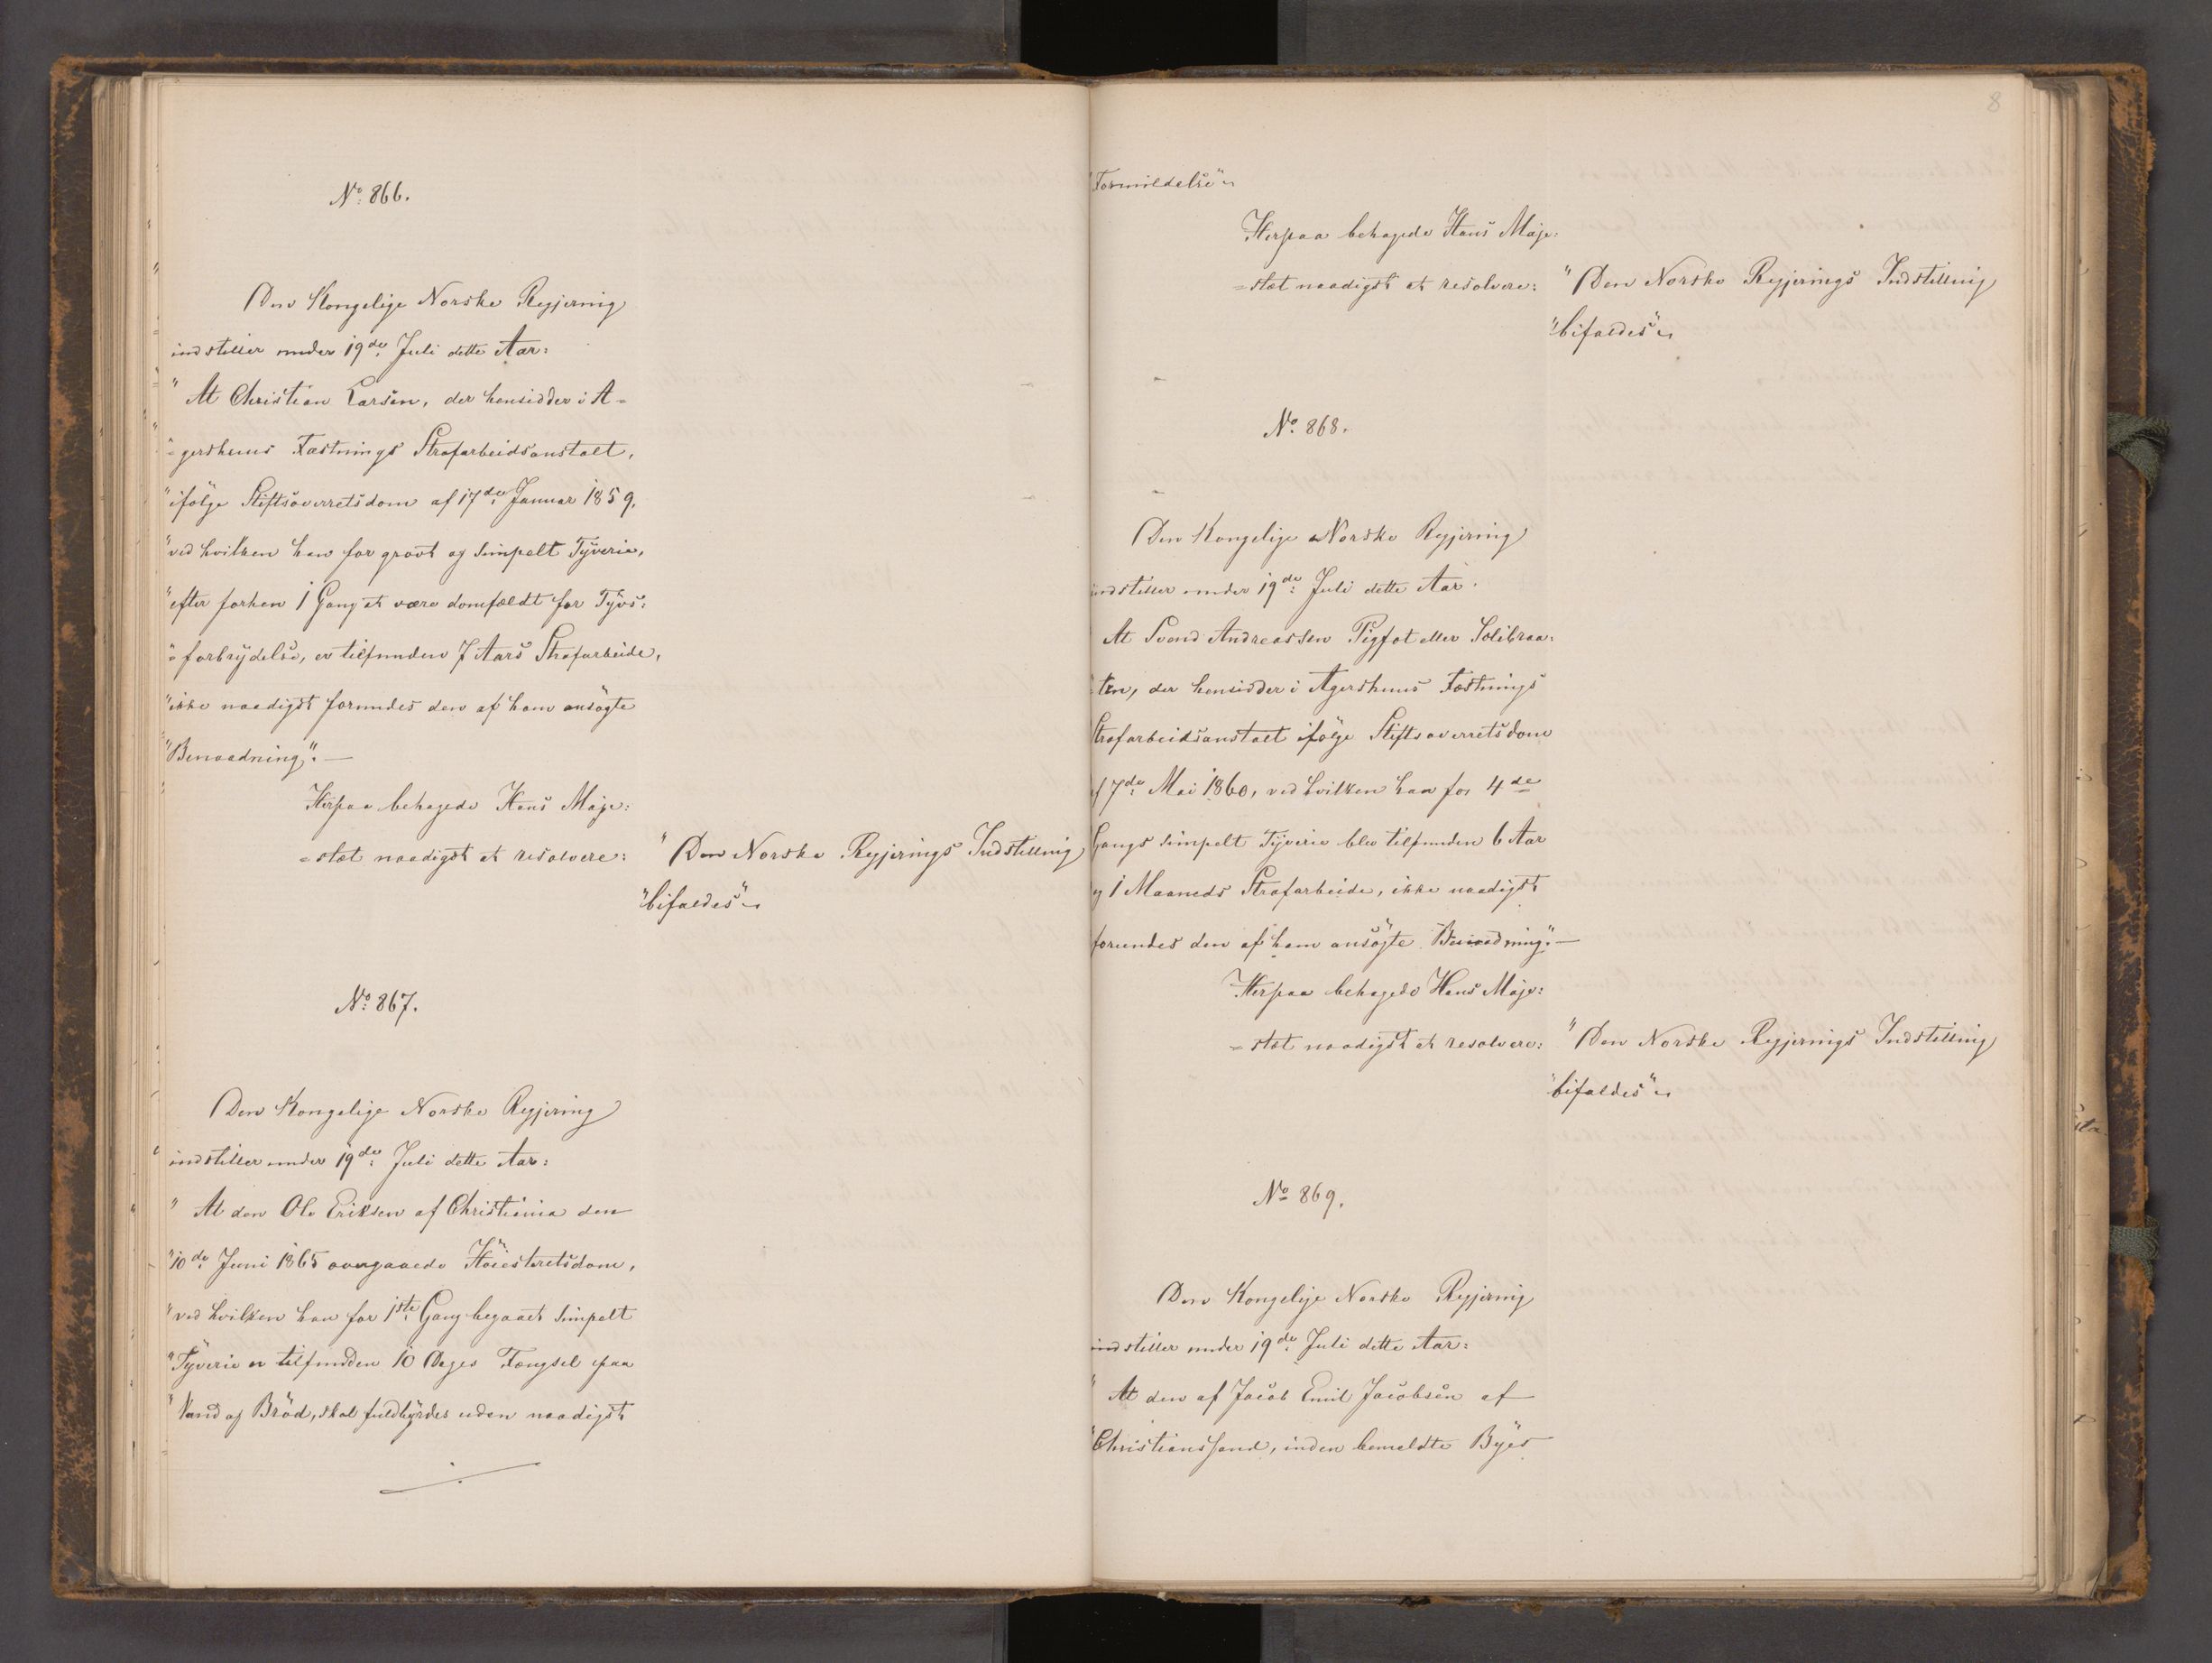 No 866.
Den Kongelige Norske Regjering
indstiller under 19de Juli dette Aar:
"At Christian Larsen, der hensidder i A=
"=gershuus Fæstnings Strafarbeidsanstalt,
"ifölge Stiftsoverretsdom af 17de Januar 1859,
"ved hvilken han for grovt og simpelt Tyverie,
"efter forhen 1 Gang at være domfældt for Tyvs=
"=forbrydelse, er tilfunden 7 Aars Strafarbeide,
"ikke naadigst forundes den af ham ansögte
"Benaadning". —
Herpaa behagede Hans Maje=
=stæt naadigst at resolvere: "Den Norske Regjerings Indstilling
"bifaldes"
No 867.
Den Kongelige Norske Regjering
indstiller under 19de Juli dette Aar:
"At den Ole Eriksen af Christiania den
"10de Juni 1865 overgaaede Höiesteretsdom,
"ved hvilken han for 1ste Gang begaaet simpelt
"Tyverie er tilfunden 10 Dages Fængsel paa
"Vand og Bröd, skal fuldbyrdes uden naadigst
8
"Formildelse"
Herpaa behagede Hans Maje=
=stæt naadigst at resolvere: "Den Norske Regjerings Indstilling
"bifaldes"
No 868.
Den Kongelige Norske Regjering
indstiller under 19de Juli dette Aar:
At Svend Andreassen Pigfot eller Solibraa=
ten, der hensidder i Agershuus Fæstnings
Strafarbeidsanstalt ifölge Stiftsoverretsdom
af 7de Mai 1860, ved hvilken han for 4de
Gangs simpelt Tyverie blev tilfunden 6 Aar
og 1 Maaneds Strafarbeide, ikke naadigst
forundes den af ham ansögte Benaadning". —
Herpaa behagede Hans Maje=
=stæt naadigst at resolvere: "Den Norske Regjerings Indstilling
"bifaldes"
No 869.
Den Kongelige Norske Regjering
indstiller under 19de Juli dette Aar:
"At den af Jacob Emil Jacobsen af
"Christianssand, inden bemeldte Byes